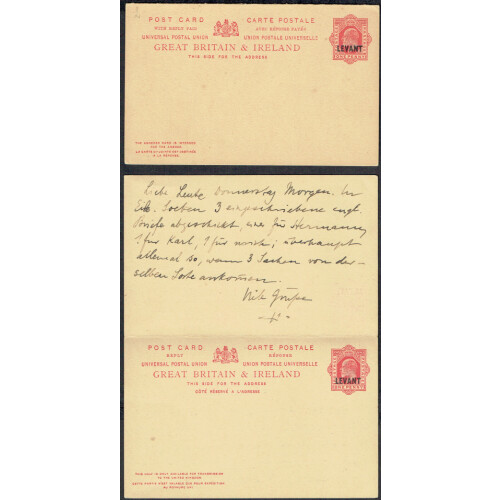 POST CARD CARTE POSTALE
WITH REPLY PAID AVEC RÉPONSE PAYÉE
UNIVERSAL POSTAL UNION UNION POSTALE UNIVERSELLE
GREAT BRITAIN & IRELAND
THIS SIDE FOR THE ADDRESS
LEVANT
ONE PENNY
THE ANNEXED CARD IS INTENDED
FOR THE ANSWER
LA CARTE CI-JOINTE EST DESTINÉE
À LA RÉPONSE
Liebe Leute Donnerstag Morgen. In
Eile. Soeben 3 eingeschriebene engl.
Briefe abgeschickt einer für Hermann
1 für Karl, 1 für mich; überhaupt
allemal so, wenn 3 Sachen von der-
selben Sorte ankommen.
POST CARD CARTE POSTALE
REPLY RÉPONSE
UNIVERSAL POSTAL UNION UNION POSTALE UNIVERSELLE
GREAT BRITAIN & IRELAND
THIS SIDE FOR THE ADDRESS
CÔTÉ RÉSERVÉ À L'ADRESSE
LEVANT
ONE PENNY
THIS HALF IS ONLY AVAILABLE FOR TRANSMISSION
TO THE UNITED KINGDOM